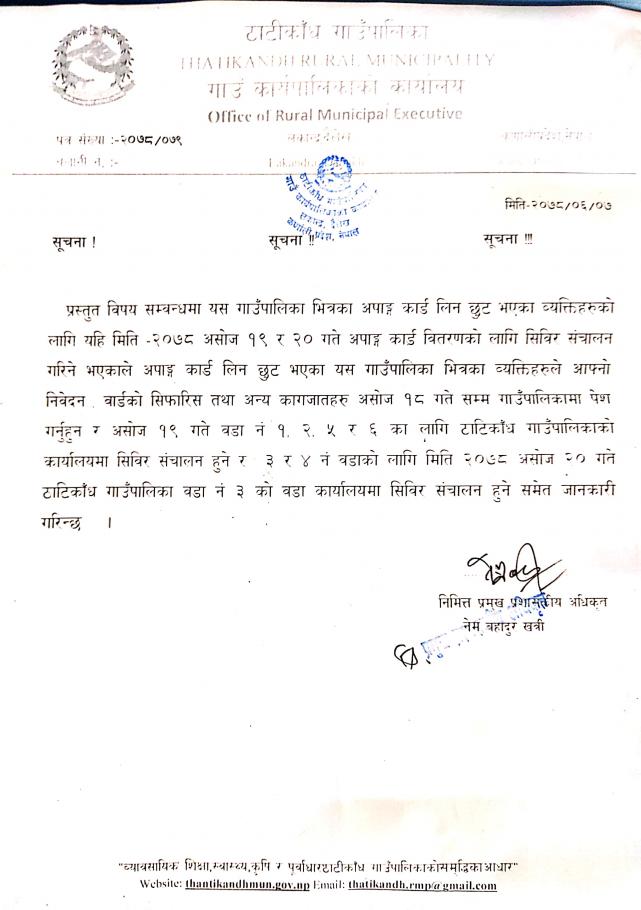 टाटीकाँध गाउँपालिका
THATIKANDH RURAL MUNICIPALITY
गाउँ कार्यपालिकाको कार्यालय
Office of Rural Municipal Executive
पत्र संख्या :-२०७८/०७९
मिति-२०७८/०६/०७
सूचना ! सूचना !! सूचना !!!
प्रस्तुत विषय सम्बन्धमा यस गाउँपालिका भित्रका अपाङ्ग कार्ड लिन छुट भएका व्यक्तिहरुको
लागि यहि मिति -२०७८ असोज १९ र २० गते अपाङ्ग कार्ड वितरणको लागि सिविर संचालन
गरिने भएकाले अपाङ्ग कार्ड लिन छुट भएका यस गाउँपालिका भित्रका व्यक्तिहरुले आफ्नो
निवेदन वार्डको सिफारिस तथा अन्य कागजातहरु असोज १८ गते सम्म गाउँपालिकामा पेश
गर्नुहुन र असोज १९ गते वडा नं १, २, ५ र ६ का लागि टाटिकाँध गाउँपालिकाको
कार्यालयमा सिविर संचालन हुने र ३ र ४ नं वडाको लागि मिति २०७८ असोज २० गते
टाटिकाँध गाउँपालिका वडा नं ३ को वडा कार्यालयमा सिविर संचालन हुने समेत जानकारी
गरिन्छ ।
निमित्त प्रमुख प्रशासकीय अधिकृत
नेम बहादुर खत्री
"व्यावसायिक शिक्षा,स्वास्थ्य,कृषि र पूर्वाधारःटाटीकाँध गाउँपालिकाकोसमृद्धिकाआधार"
Website: thantikandhmun.gov.np Email: thatikandh.rmp@gmail.com